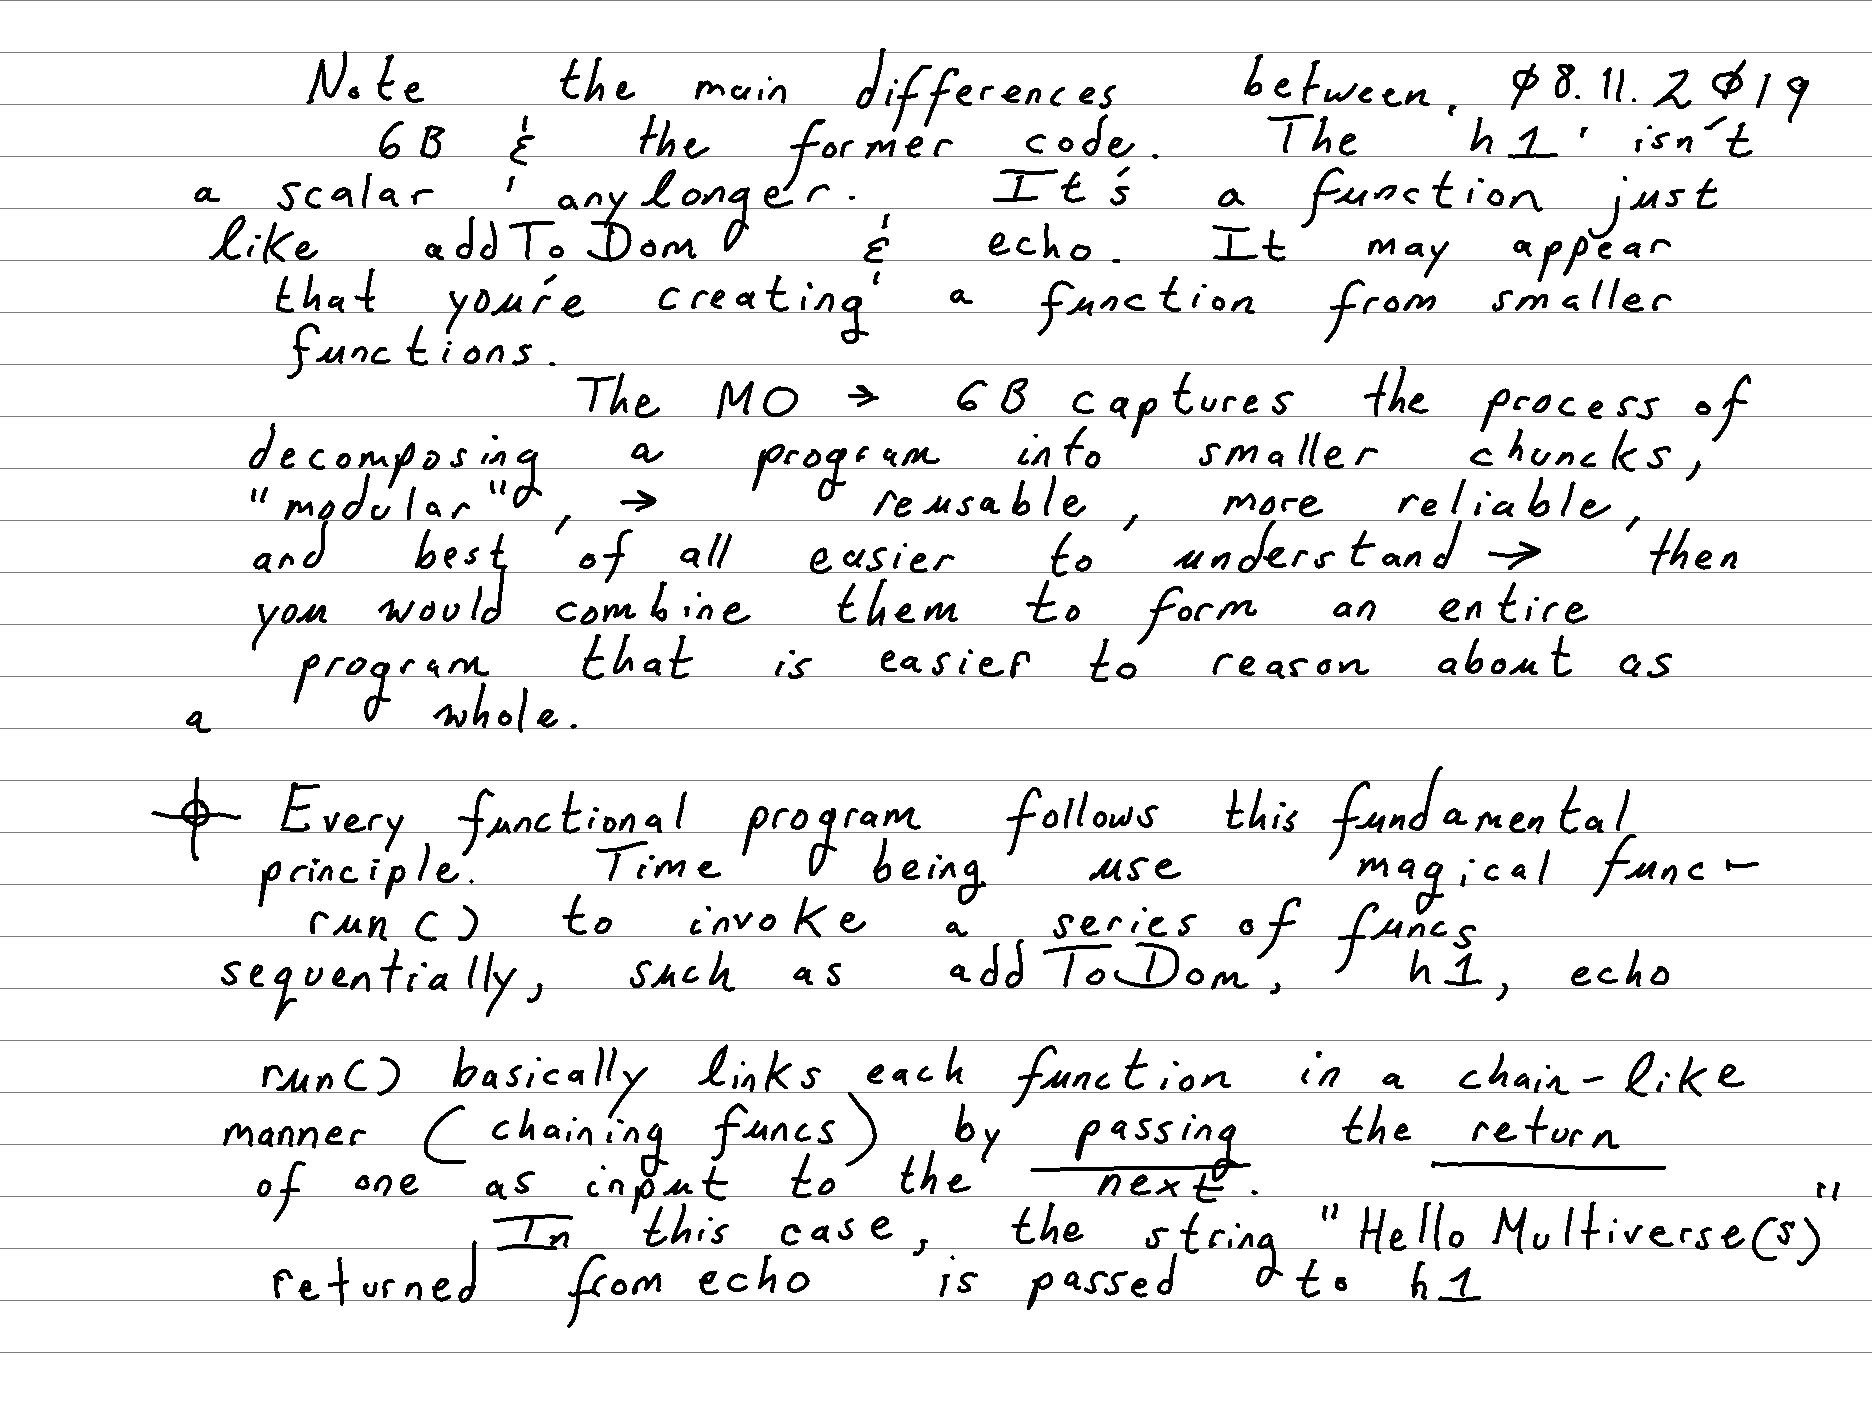 Note the main differences between. Ø8.11.2Ø19
6B & the former code. The h1 isn't
a scalar anylonger. It's a function just
like addToDom & echo. It may appear
that you're creating a function from smaller
functions.
The MO → 6B captures the process of
decomposing a program into smaller chuncks,
"modular", → reusable, more reliable,
and best of all easier to understand → then
you would combine them to form an entire
program that is easier to reason about as
a whole.
Every functional program follows this fundamental
principle. Time being use magical func -
run() to invoke a series of funcs
sequentially, such as addToDom, h1, echo
run() basically links each function in a chain-like
manner (chaining funcs) by passing the return
of one as input to the next.
In this case, the string "Hello Multiverse(s)"
returned from echo is passed to h1